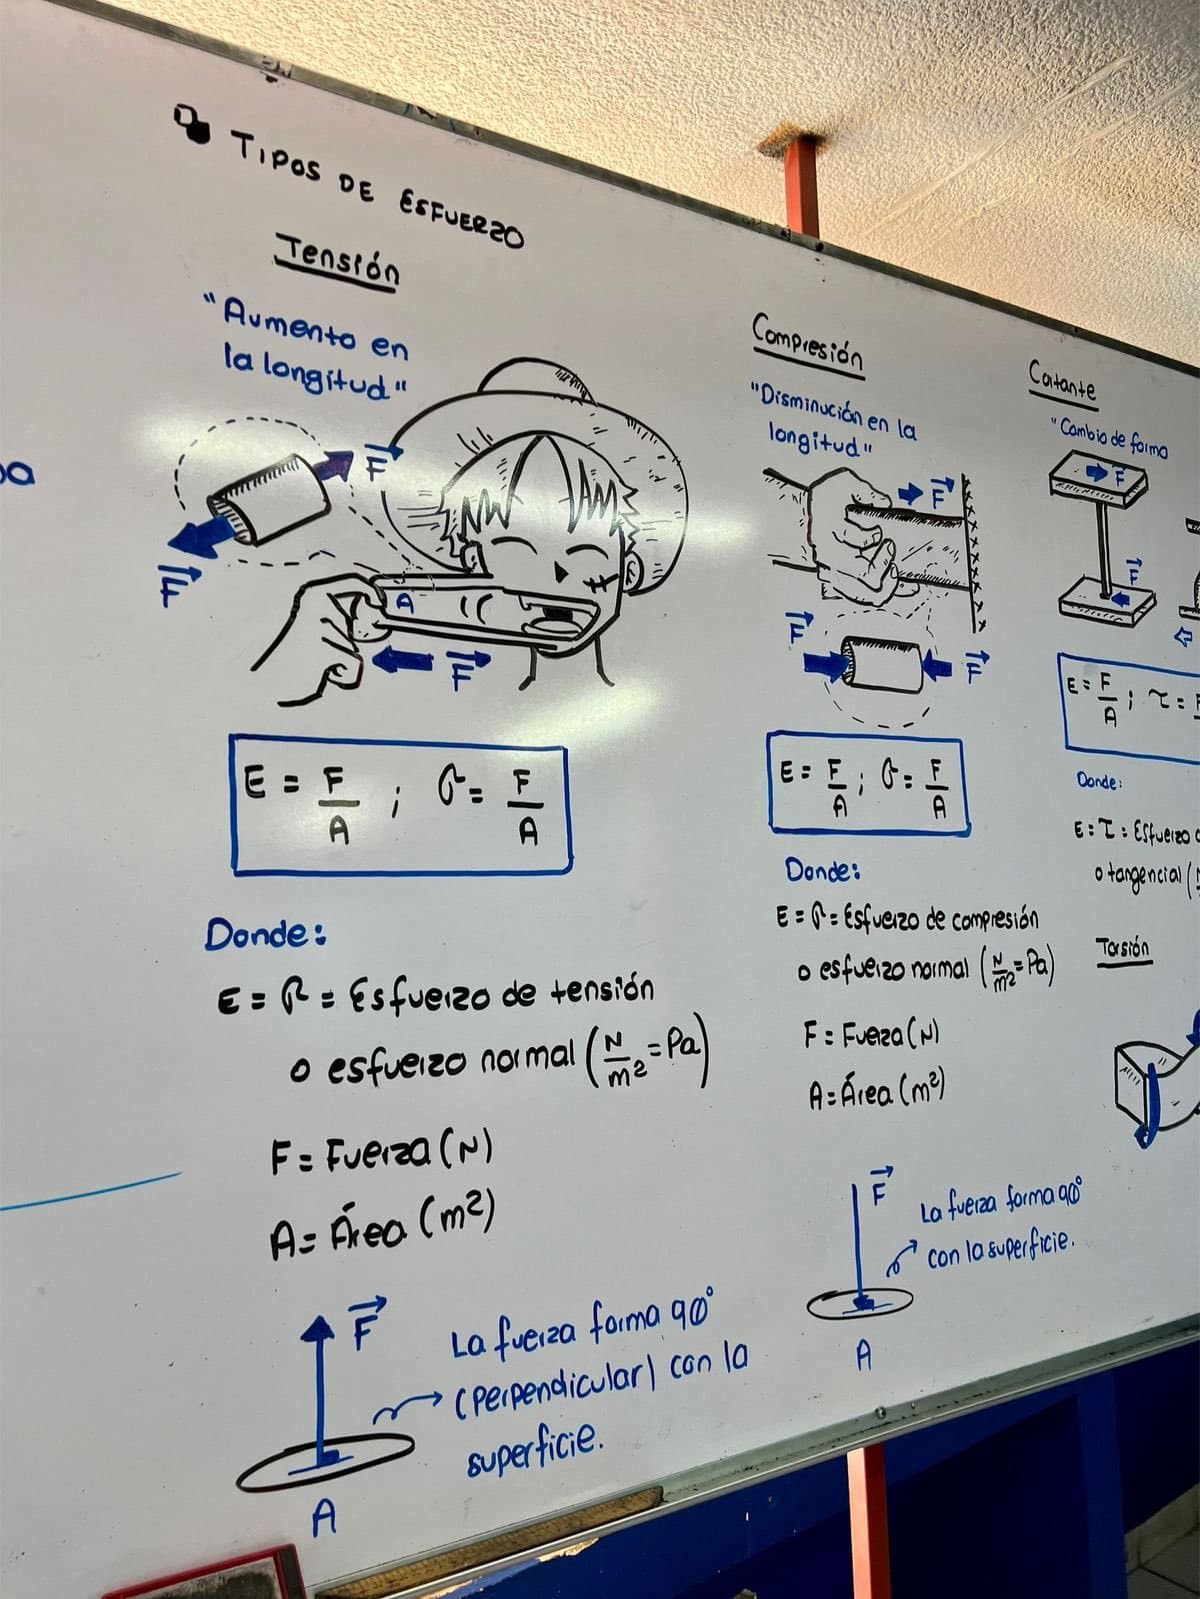 TIPOS DE ESFUERZO
Tensión
"Aumento en
la longitud"
F
F
A
F
E = F/A ; σ = F/A
Donde:
E = σ = Esfuerzo de tensión
o esfuerzo normal (N/m² = Pa)
F = Fuerza (N)
A = Área (m²)
F
La fuerza forma 90°
(perpendicular) con la
superficie.
A
Compresión
"Disminución en la
longitud"
F
F
F
E = F/A ; σ = F/A
Donde:
E = σ = Esfuerzo de compresión
o esfuerzo normal (N/m² = Pa)
F = Fuerza (N)
A = Área (m²)
F
La fuerza forma 90°
con la superficie.
A
Cortante
"Cambio de forma
F
F
E = F/A ; τ =
Donde:
E = τ = Esfuerzo
o tangencial (
Torsión